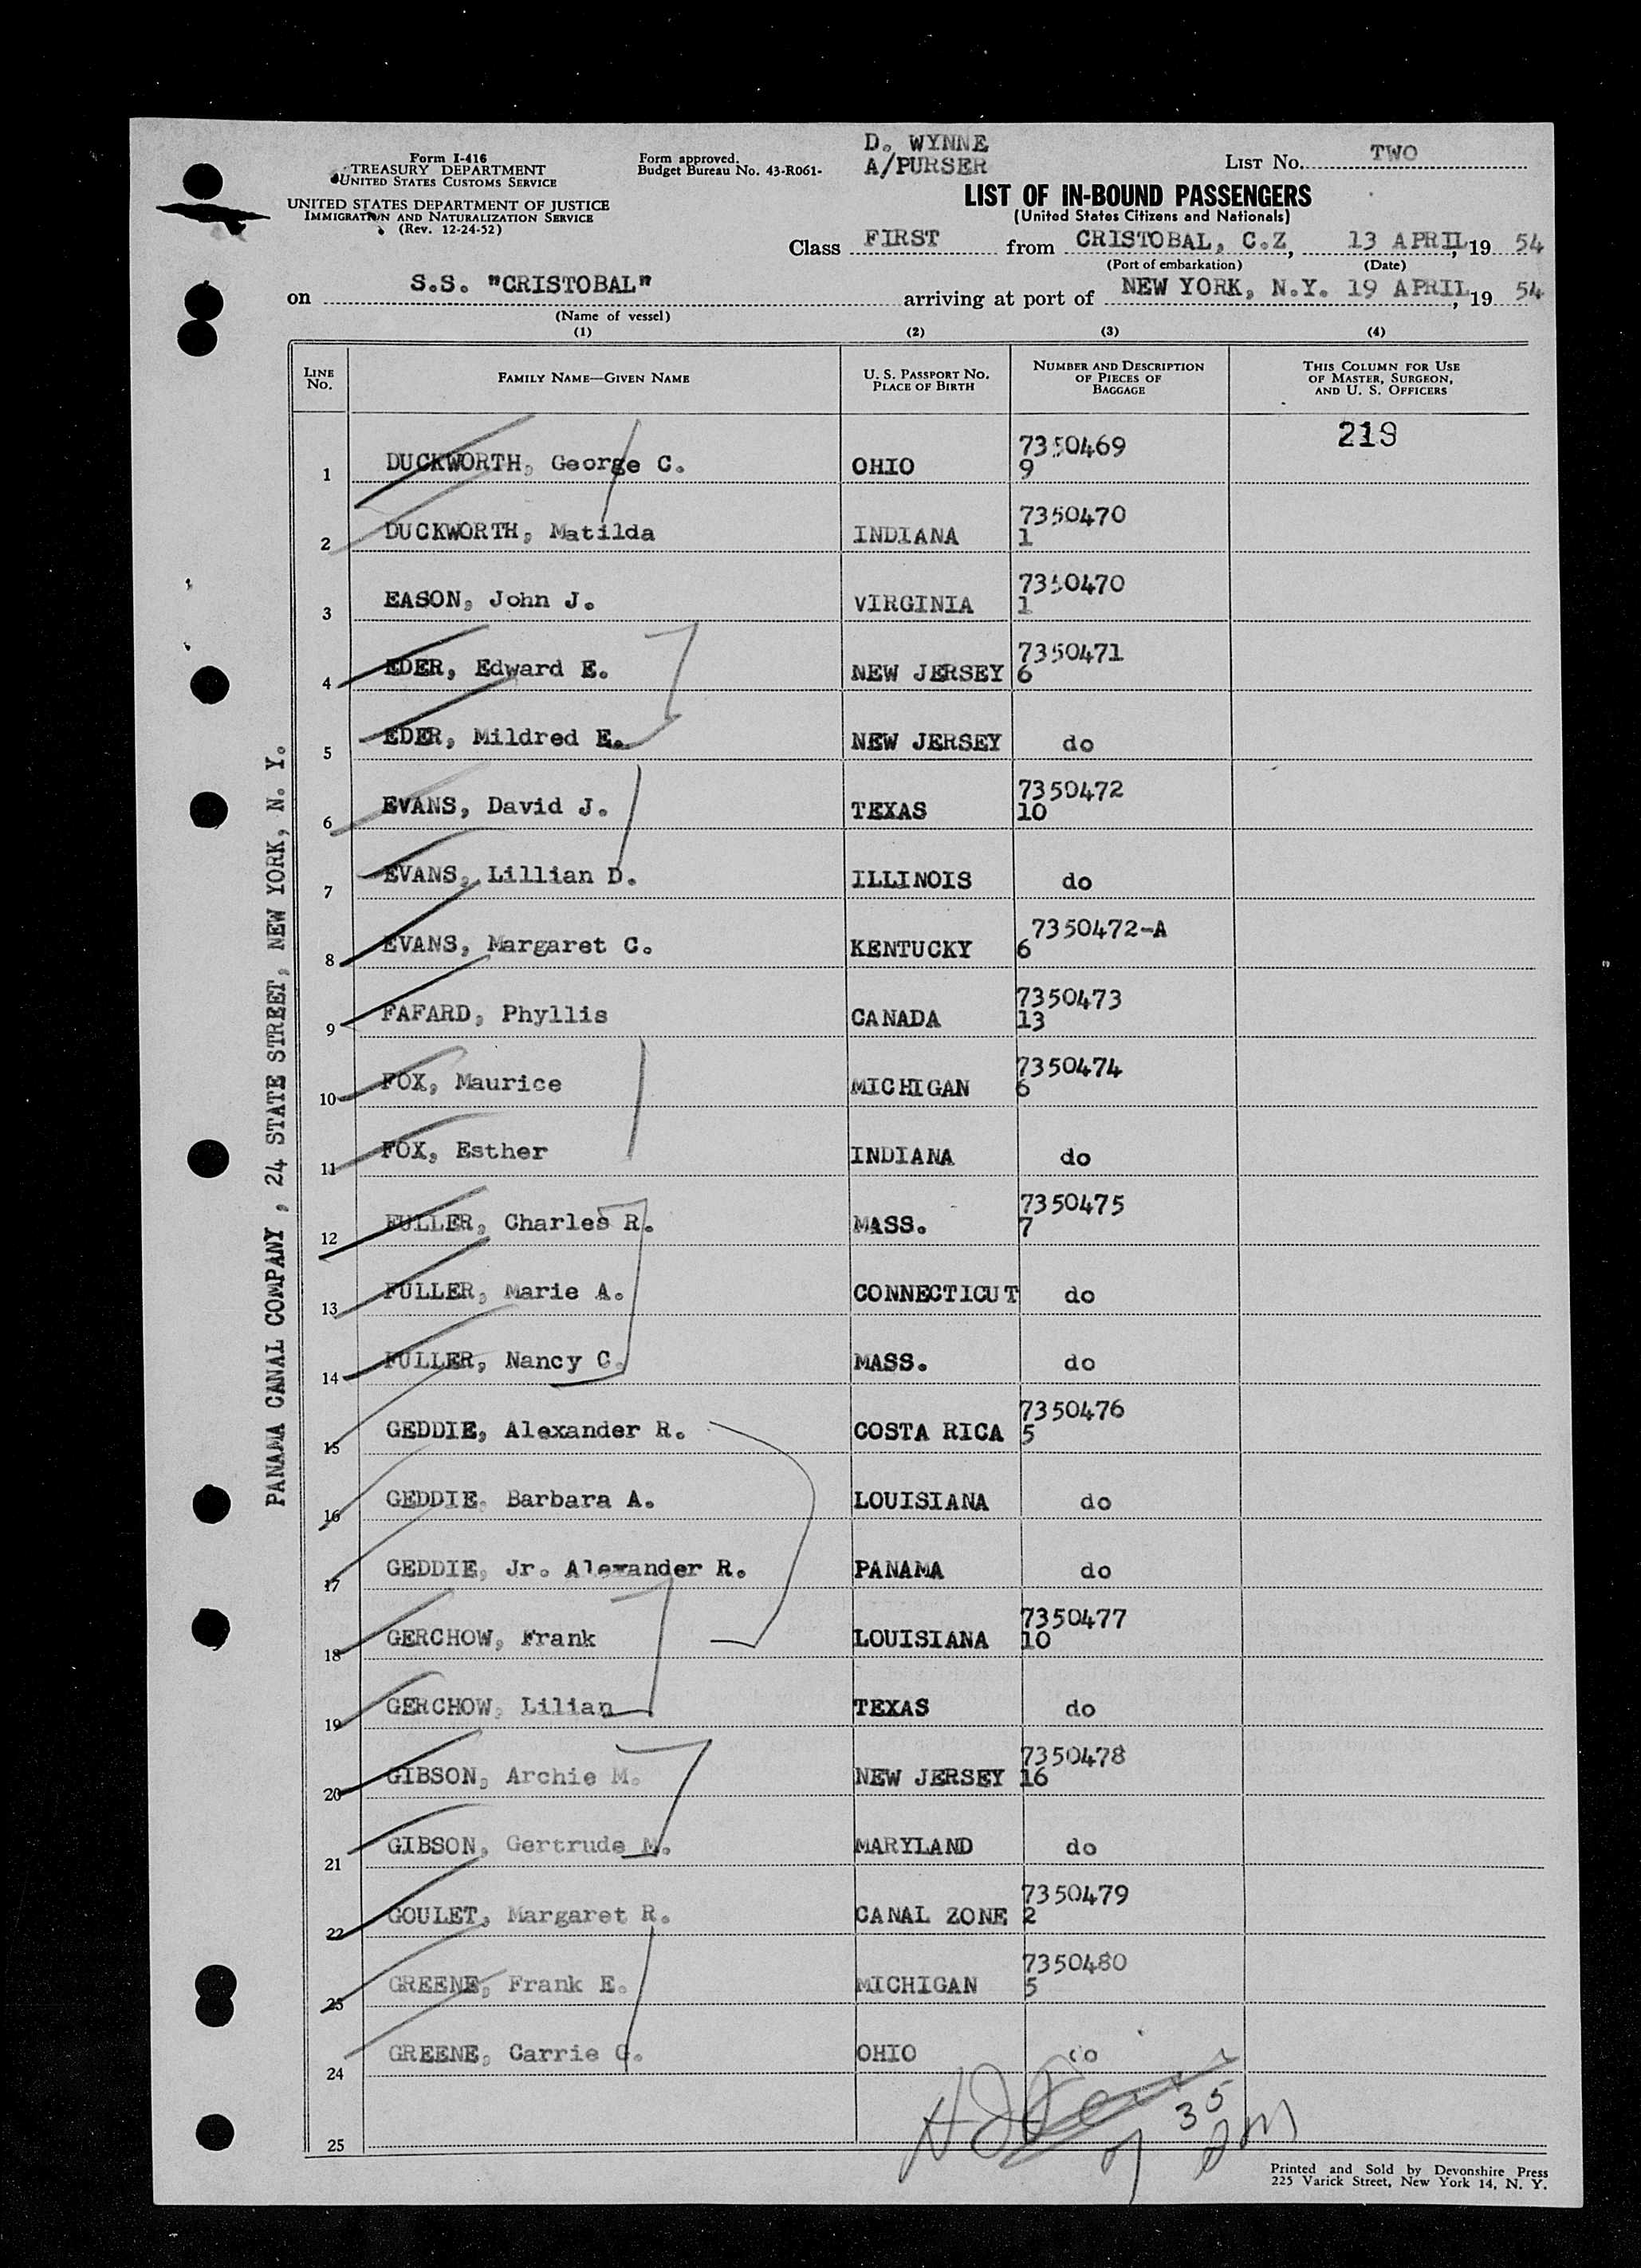 D. WYNNE
A/PURSER
Form I-416
TREASURY DEPARTMENT
UNITED STATES CUSTOMS SERVICE
UNITED STATES DEPARTMENT OF JUSTICE
IMMIGRATION AND NATURALIZATION SERVICE
(Rev. 12-24-52)
Form approved.
Budget Bureau No. 43-R061-
LIST No. TWO
LIST OF IN-BOUND PASSENGERS
(United States Citizens and Nationals)
Class FIRST from CRISTOBAL, C.Z, 13 APRIL, 19 54
(Port of embarkation) (Date)
on S.S. "CRISTOBAL" arriving at port of NEW YORK, N.Y. 19 APRIL, 19 54
(Name of vessel)
(1) (2) (3) (4)
LINE NO. FAMILY NAME—GIVEN NAME U. S. PASSPORT NO. PLACE OF BIRTH NUMBER AND DESCRIPTION OF PIECES OF BAGGAGE THIS COLUMN FOR USE OF MASTER, SURGEON, AND U. S. OFFICERS
219
1 DUCKWORTH, George C. OHIO 7350469 9
2 DUCKWORTH, Matilda INDIANA 7350470 1
3 EASON, John J. VIRGINIA 7350470 1
4 EDER, Edward E. NEW JERSEY 7350471 6
5 EDER, Mildred E. NEW JERSEY do
6 EVANS, David J. TEXAS 7350472 10
7 EVANS, Lillian D. ILLINOIS do
8 EVANS, Margaret C. KENTUCKY 7350472-A 6
9 FAFARD, Phyllis CANADA 7350473 13
10 FOX, Maurice MICHIGAN 7350474 6
11 FOX, Esther INDIANA do
12 FULLER, Charles R. MASS. 7350475 7
13 FULLER, Marie A. CONNECTICUT do
14 FULLER, Nancy C. MASS. do
15 GEDDIE, Alexander R. COSTA RICA 7350476 5
16 GEDDIE, Barbara A. LOUISIANA do
17 GEDDIE, Jr. Alexander R. PANAMA do
18 GERCHOW, Frank LOUISIANA 7350477 10
19 GERCHOW, Lilian TEXAS do
20 GIBSON, Archie M. NEW JERSEY 7350478 16
21 GIBSON, Gertrude M. MARYLAND do
22 GOULET, Margaret R. CANAL ZONE 7350479 2
23 GREENE, Frank E. MICHIGAN 7350480 5
24 GREENE, Carrie C. OHIO do
25
PANAMA CANAL COMPANY, 24 STATE STREET, NEW YORK, N. Y.
Printed and Sold by Devonshire Press
225 Varick Street, New York 14, N. Y.